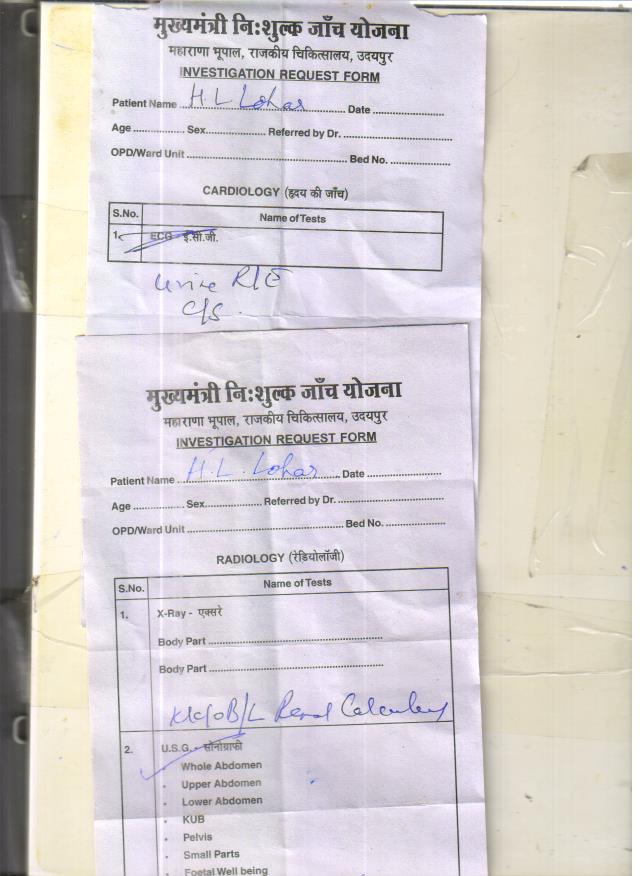 मुख्यमंत्री नि:शुल्क जाँच योजना
महाराणा भूपाल, राजकीय चिकित्सालय, उदयपुर
INVESTIGATION REQUEST FORM
Patient Name H L Lohar Date
Age Sex Referred by Dr.
OPD/Ward Unit Bed No.
CARDIOLOGY (हृदय की जाँच)
S.No. Name of Tests
1. ECG - ई.सी.जी.
Urine R/E
C/S.
मुख्यमंत्री नि:शुल्क जाँच योजना
महाराणा भूपाल, राजकीय चिकित्सालय, उदयपुर
INVESTIGATION REQUEST FORM
Patient Name H. L. Lohar Date
Age Sex Referred by Dr.
OPD/Ward Unit Bed No.
RADIOLOGY (रेडियोलॉजी)
S.No. Name of Tests
1. X-Ray - एक्सरे
Body Part
Body Part
K/c/o B/L Renal Calculus
2. U.S.G. - सोनोग्राफी
Whole Abdomen
Upper Abdomen
Lower Abdomen
KUB
Pelvis
Small Parts
Foetal Well being